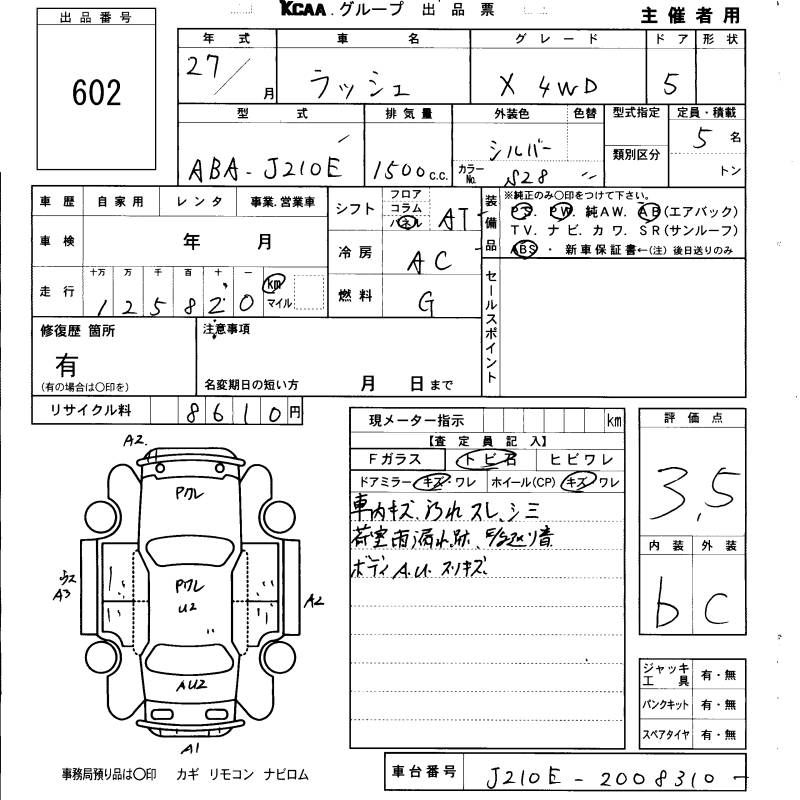 KCAA.グループ 出品票
主催者用
出品番号
602
年式 車名 グレード ドア 形状
27/ 月 ラッシュ X 4WD 5
型式 排気量 外装色 色替 型式指定 定員・積載
ABA-J210E 1500 c.c. シルバー カラーNo. S28 類別区分 5 名
トン
車歴 自家用 レンタ 事業.営業車
車検 年 月
走行 十万 万 千 百 十 一
1 2 5 8 2 0 km マイル
シフト フロア コラム パネル AT
冷房 AC
燃料 G
装備品
※純正のみ○印をつけて下さい。
PS. PW. 純AW. AB(エアバック)
TV. ナビ. カワ. SR(サンルーフ)
ABS ・ 新車保証書←(注)後日送りのみ
セールスポイント
修復歴 箇所
有
(有の場合は○印を)
注意事項
名変期日の短い方 月 日まで
リサイクル料 8610円
現メーター指示 km
【査定員記入】
Fガラス トビ石 ヒビワレ
ドアミラー キズ・ワレ ホイール(CP) キズ・ワレ
車内キズ、汚れ スレ、シミ
荷室雨漏れ跡、
ボディ A.U. スリキズ
評価点
3.5
内装 外装
b C
ジャッキ工具 有・無
パンクキット 有・無
スペアタイヤ 有・無
A2.
Pワレ
Pワレ
U2
A3
A2
AU2
A1
事務局預り品は○印 カギ リモコン ナビロム
車台番号 J210E-2008310